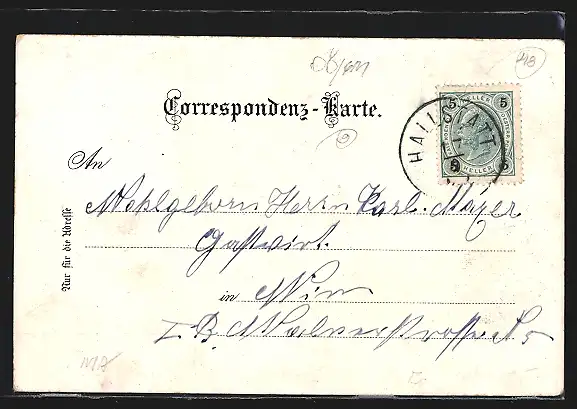 Correspondenz-Karte.
HALLSTATT
5 5
HELLER
5 5
An
Wohlgeborn Herrn Karl Mayer
Gastwirt.
in Wien
I. B.
Nur für die Adresse